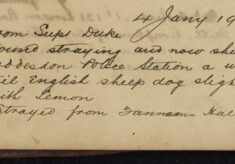 4 Jany 19
om Supt Duke
ound straying and now she
ddesdon Police Station a w
il English sheep dog sligh
ith Lemon
trayed from Fanhams Hal